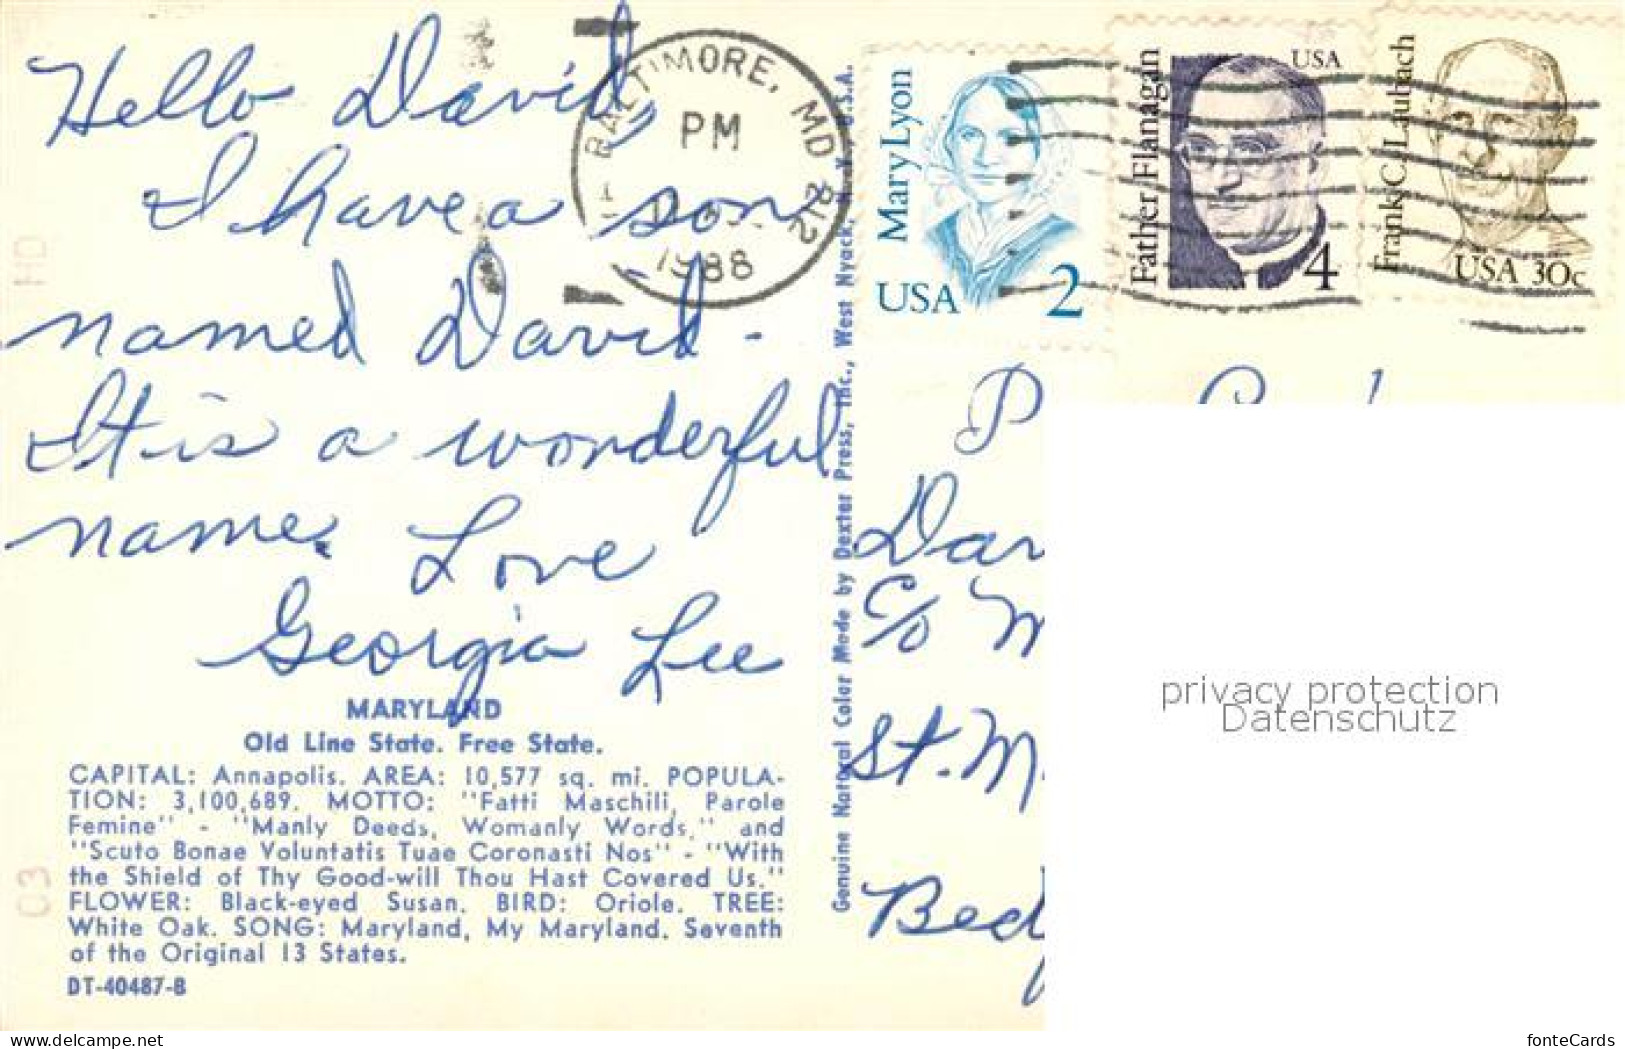 Hello David,
I have a son
named David -
It is a wonderful
name.
Love
Georgia Lee
MARYLAND
Old Line State. Free State.
CAPITAL: Annapolis. AREA: 10,577 sq. mi. POPULA-
TION: 3,100,689. MOTTO: "Fatti Maschili, Parole
Femine" - "Manly Deeds, Womanly Words," and
"Scuto Bonae Voluntatis Tuae Coronasti Nos" - "With
the Shield of Thy Good-will Thou Hast Covered Us."
FLOWER: Black-eyed Susan. BIRD: Oriole. TREE:
White Oak. SONG: Maryland, My Maryland. Seventh
of the Original 13 States.
DT-40487-B
BALTIMORE, MD 212
PM
1988
Genuine Natural Color Made by Dexter Press, Inc., West Nyack, N. Y., U.S.A.
Mary Lyon
USA 2
Father Flanagan
USA
4
Frank C. Laubach
USA 30c
c/o M
St. M
privacy protection
Datenschutz
HD
03
www.delcampe.net
fonteCards